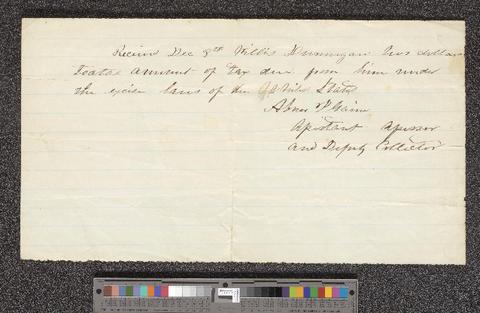 Recivd Dec 9th Willis Dunnigan two dollars
Total amount of tax due from him under
the excise laws of the United States
Abner
Assistant Assessor
and Deputy Collector